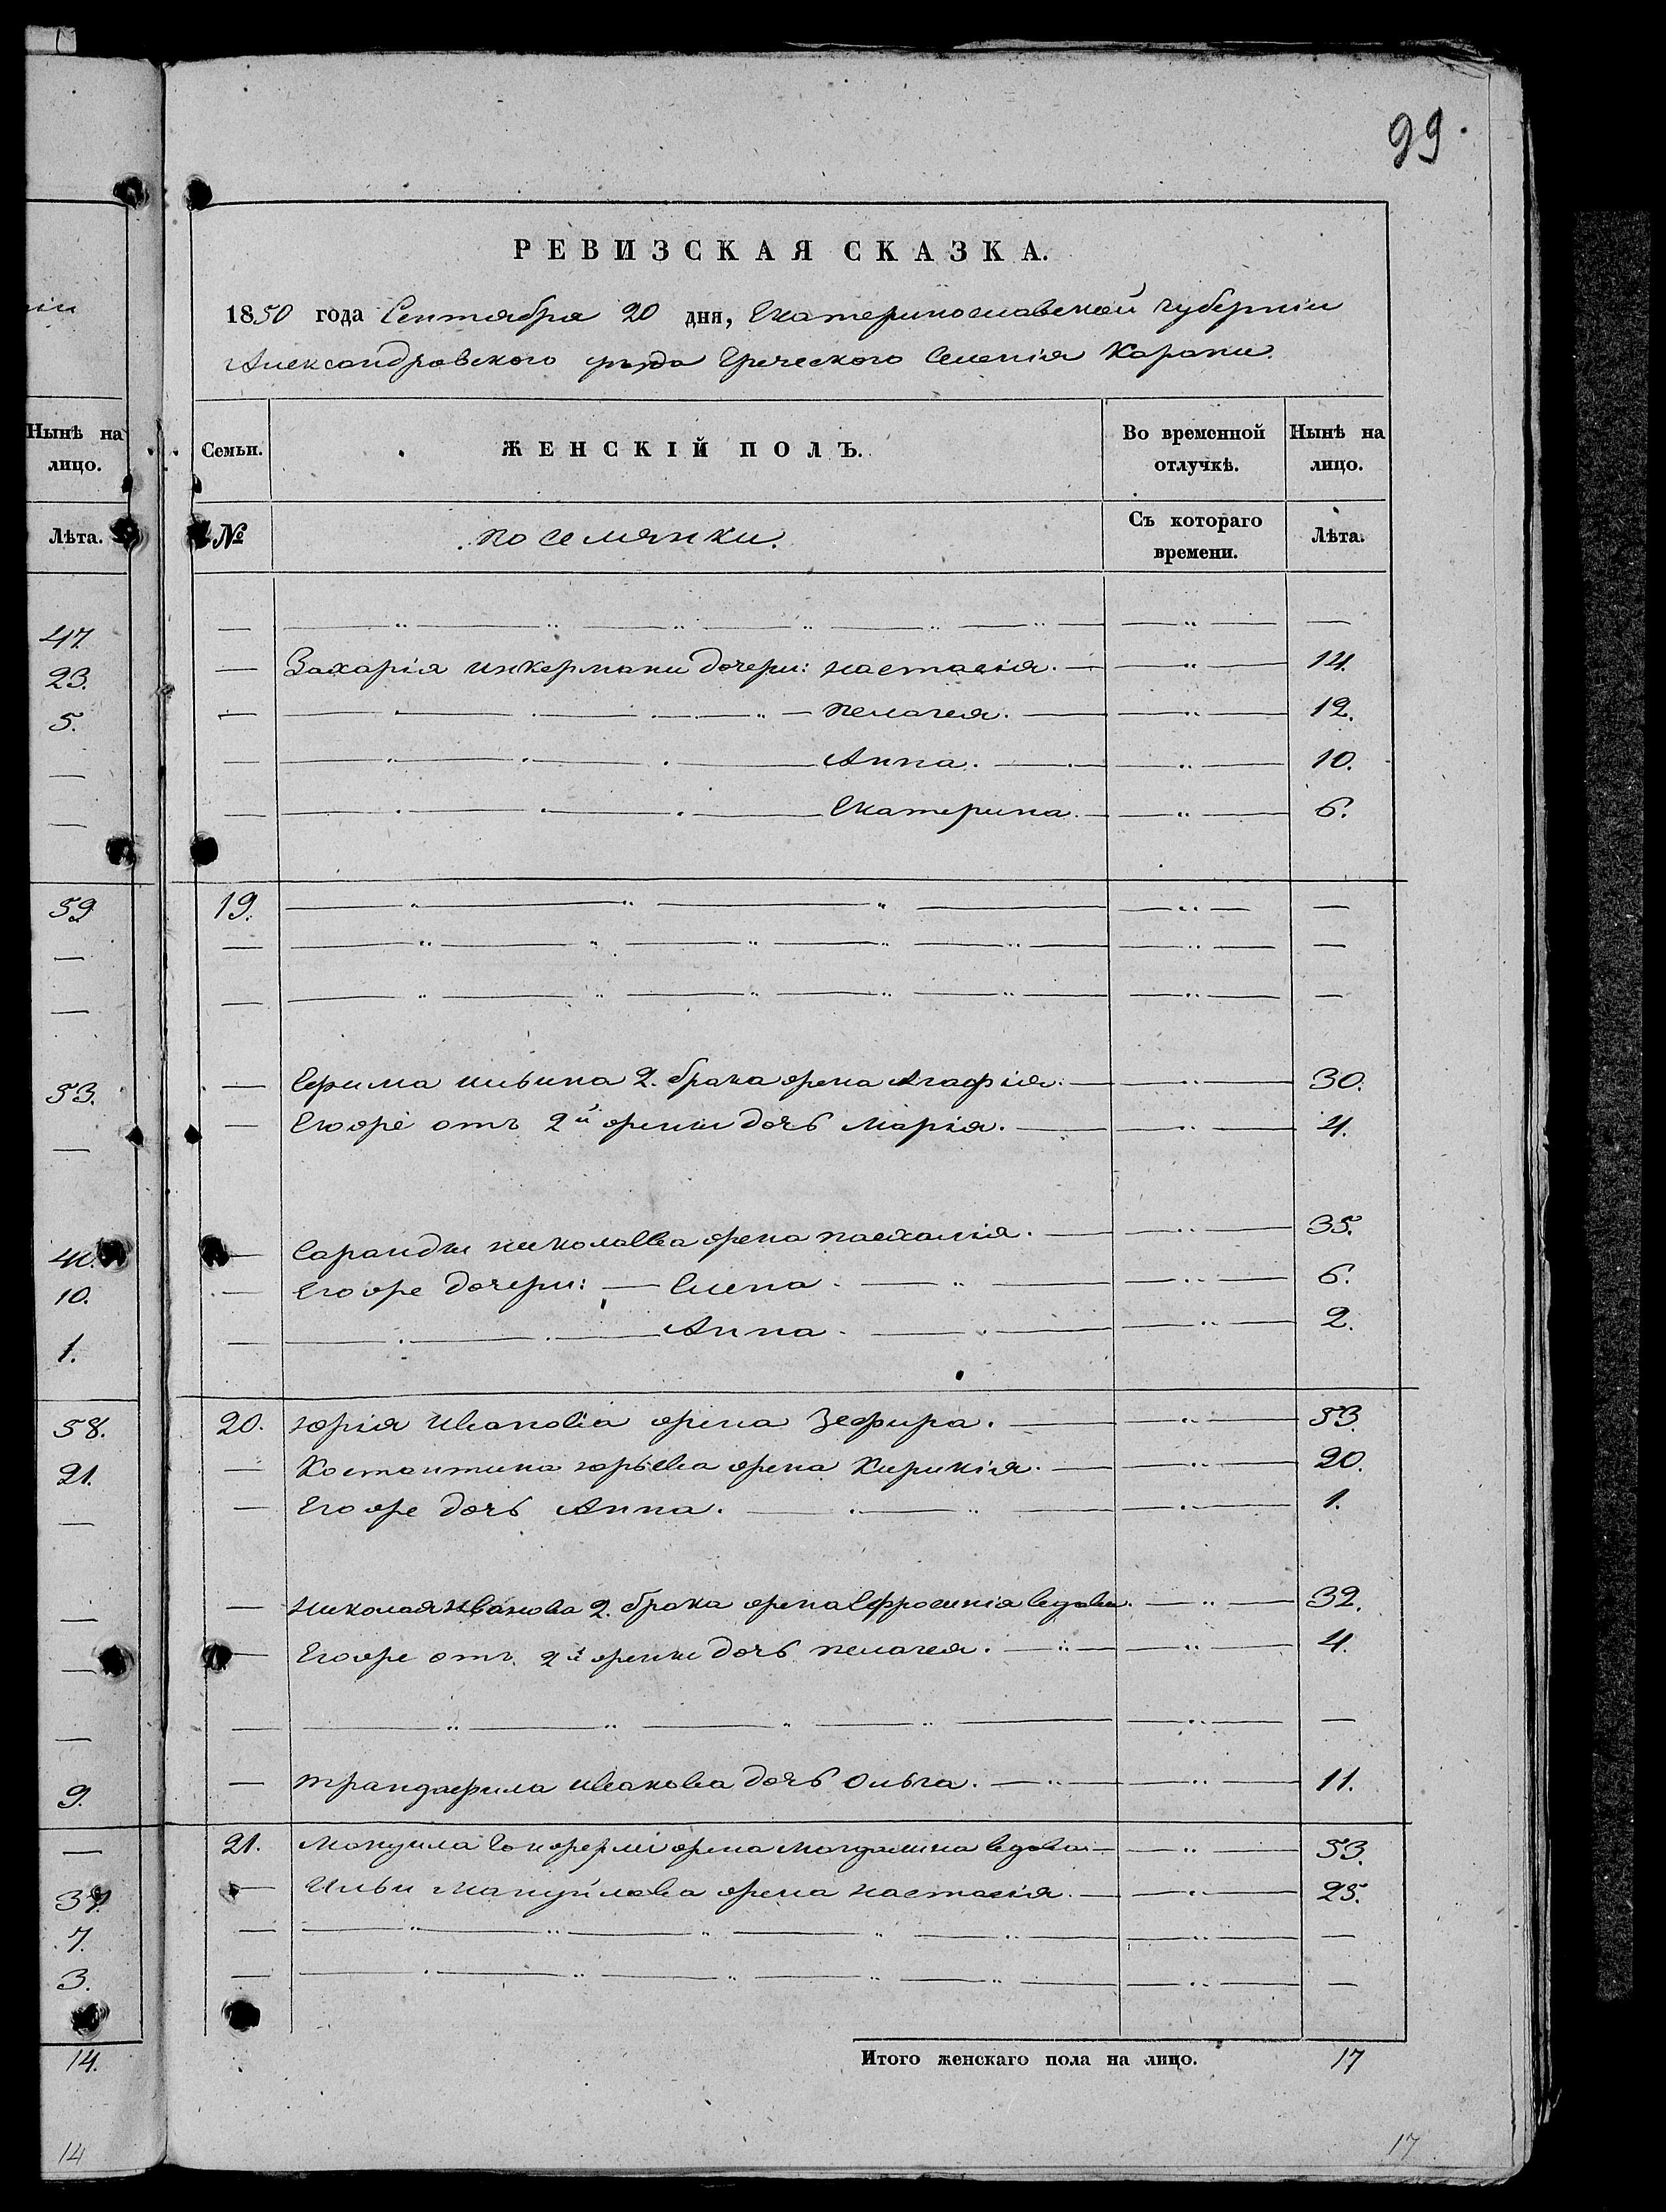 99.
РЕВИЗСКАЯ СКАЗКА.
1850 года Сентября 20 дня, Екатеринославской губерніи
Александровского уѣзда Греческого Селенія Карани.
Нынѣ на лицо.
Лѣта.
47.
23.
5.
—
—
59
—
—
53.
—
10.
1.
58.
21.
—
—
—
—
9.
—
7.
3.
14.
14
Семьи. ЖЕНСКІЙ ПОЛЪ. Во временной отлучкѣ. Нынѣ на лицо.
№ поселянки. Съ котораго времени. Лѣта.
— — „ — —
— Захарія инкермани дочери: настасія. — „ — 14.
— — пелагея. — „ — 12.
— — Анна. — „ — 10.
— — Екатерина. — „ — 6.
19. — „ — —
— — „ — —
— — „ — —
— Ефима ильина 2. брака жена Агафія. — „ — 30.
— Егоже отъ 2й жены дочь Марія. — „ — 4.
— Саранди николаева жена пасхалія. — „ — 35.
— Егоже дочери: — Елена. — „ — 6.
— — Анна. — „ — 2.
20. юрія Иванова жена Зефира. — „ — 53.
— Костантина юрьева жена Кирикія. — „ — 20.
— Егоже дочь Анна. — „ — 1.
— николая Иванова 2. брака жена Ефросинія вдова. — „ — 32.
— Егоже отъ 2й жены дочь пелагея. — „ — 4.
— — „ — —
— трандафила иванова дочь Ольга. — „ — 11.
21. Мануила жена Магдалина вдова — „ — 53.
— Ильи Мануйлова жена настасія. — „ — 25.
— — „ — —
— — „ — —
Итого женскаго пола на лицо. 17
17